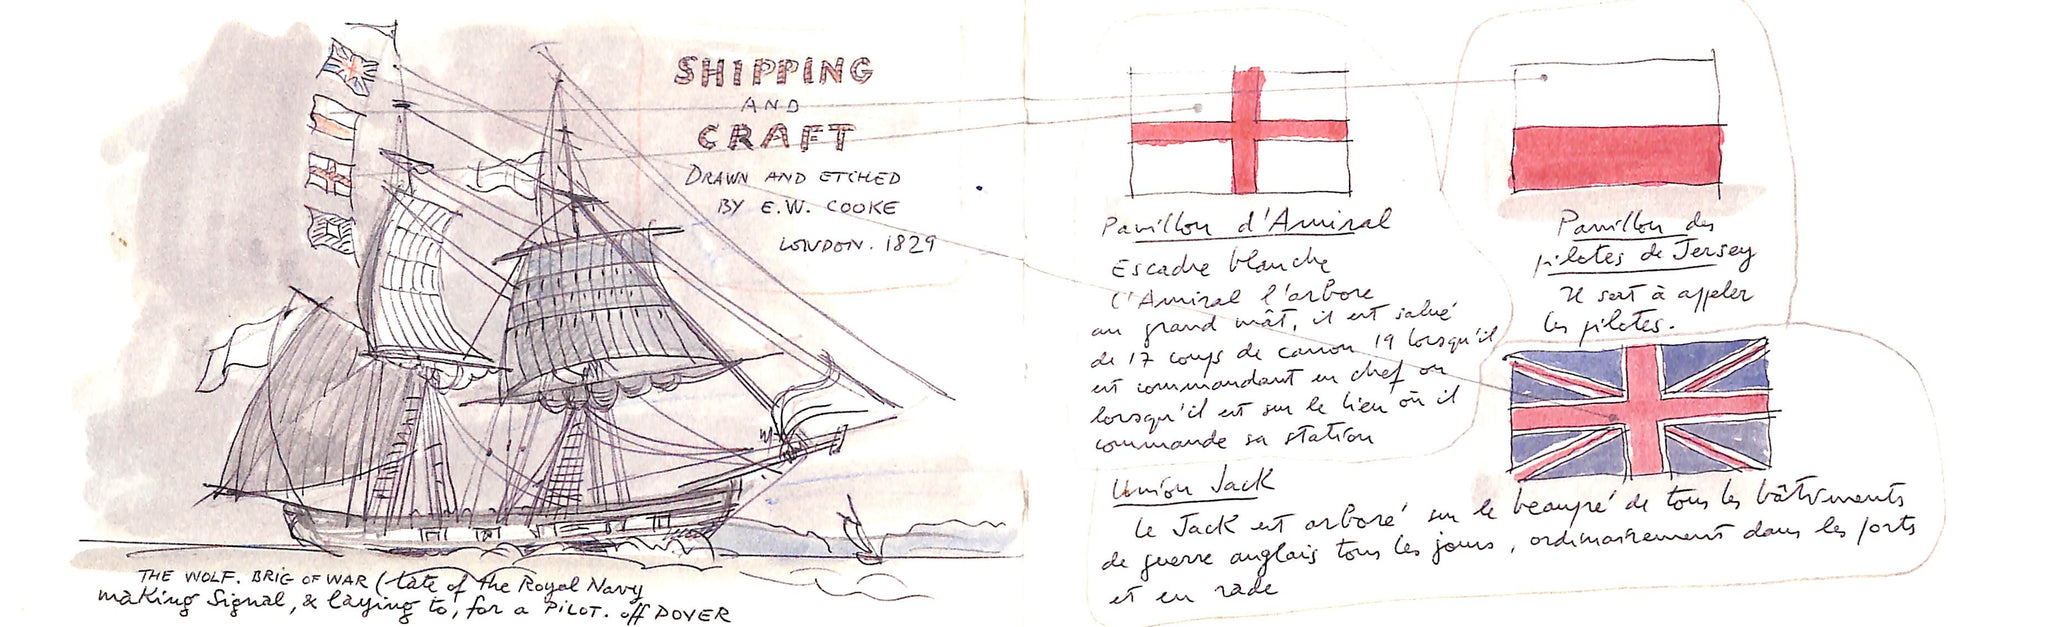 SHIPPING
AND
CRAFT
DRAWN AND ETCHED
BY E.W. COOKE
LONDON. 1829
THE WOLF. BRIG OF WAR (late of the Royal Navy
making Signal, & laying to, for a PILOT. off DOVER
Pavillon d'Amiral
Escadre blanche
l'Amiral l'arbore
au grand mât, il est salué
de 17 coups de canon 19 lorsqu'il
est commandant en chef ou
lorsqu'il est sur le lieu où il
commande sa station
Pavillon des
pilotes de Jersey
Il sert à appeler
les pilotes.
Union Jack
Le Jack est arboré sur le beaupré de tous les bâtiments
de guerre anglais tous les jours, ordinairement dans les ports
et en rade